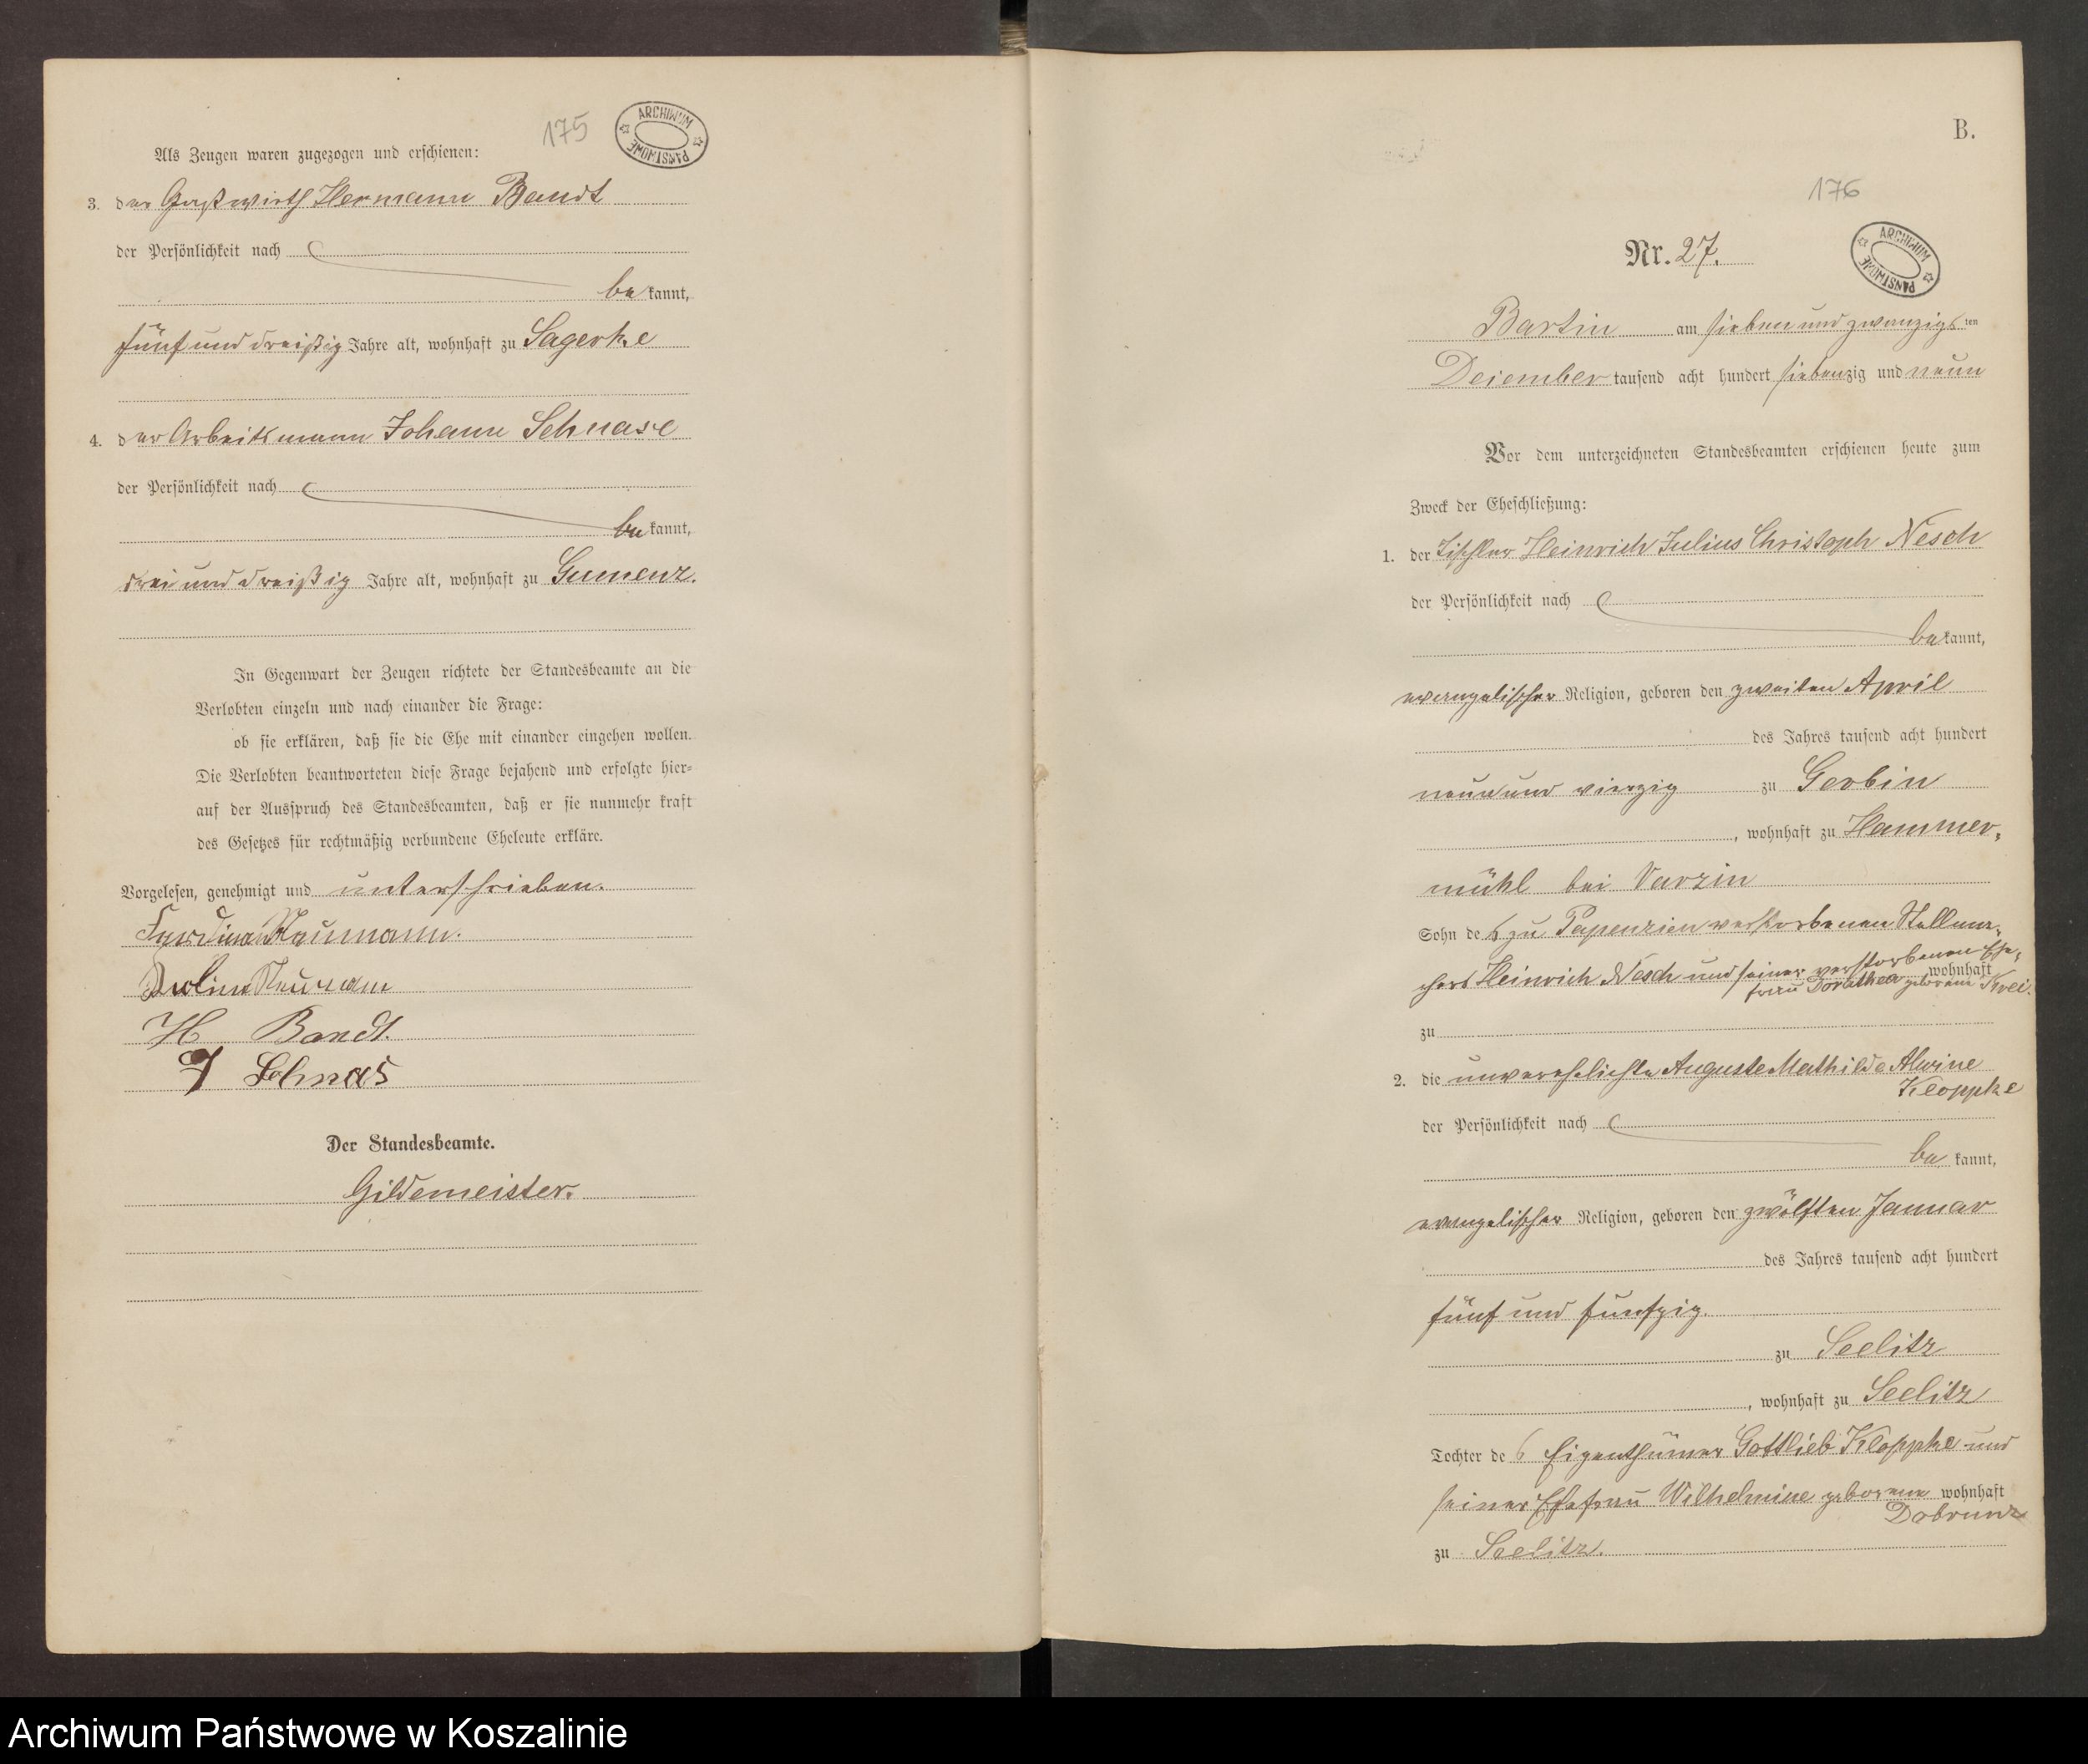 175
ARCHIWUM PAŃSTWOWE
Als Zeugen waren zugezogen und erschienen:
3. der Gastwirth Hermann Bandt
der Persönlichkeit nach
bekannt,
fünfunddreißig Jahre alt, wohnhaft zu Sagerke
4. der Arbeitsmann Johann Schnase
der Persönlichkeit nach
bekannt,
dreiunddreißig Jahre alt, wohnhaft zu Gumenz.
In Gegenwart der Zeugen richtete der Standesbeamte an die
Verlobten einzeln und nach einander die Frage:
ob sie erklären, daß sie die Ehe mit einander eingehen wollen.
Die Verlobten beantworteten diese Frage bejahend und erfolgte hier-
auf der Ausspruch des Standesbeamten, daß er sie nunmehr kraft
des Gesetzes für rechtmäßig verbundene Eheleute erkläre.
Vorgelesen, genehmigt und unterschrieben.
Naumann.
H Bandt.
J Schnas
Der Standesbeamte.
Gildemeister.
B.
176
ARCHIWUM PAŃSTWOWE
Nr. 27.
Bartin am siebenundzwanzigsten
Dezember tausend acht hundert siebenzig und neun
Vor dem unterzeichneten Standesbeamten erschienen heute zum
Zweck der Eheschließung:
1. der Tischler Heinrich Julius Christoph Nesch
der Persönlichkeit nach
bekannt,
evangelischer Religion, geboren den zweiten April
des Jahres tausend acht hundert
neunund vierzig zu Gerbin
, wohnhaft zu Hammer-
mühl bei Varzin
Sohn des zu Papenzien verstorbenen Stellma-
chers Heinrich Nesch und seiner verstorbenen Ehe-
frau Dorothea geborene wohnhaft
zu
2. die unverehelichte Auguste Mathilde Alwine
Kloppke
der Persönlichkeit nach
bekannt,
evangelischer Religion, geboren den zwölften Januar
des Jahres tausend acht hundert
fünf und fünfzig.
zu Seelitz
, wohnhaft zu Seelitz
Tochter des Eigenthümer Gottlieb Kloppke und
seiner Ehefrau Wilhelmine geborene wohnhaft
Dobrunz
zu Seelitz.
Archiwum Państwowe w Koszalinie